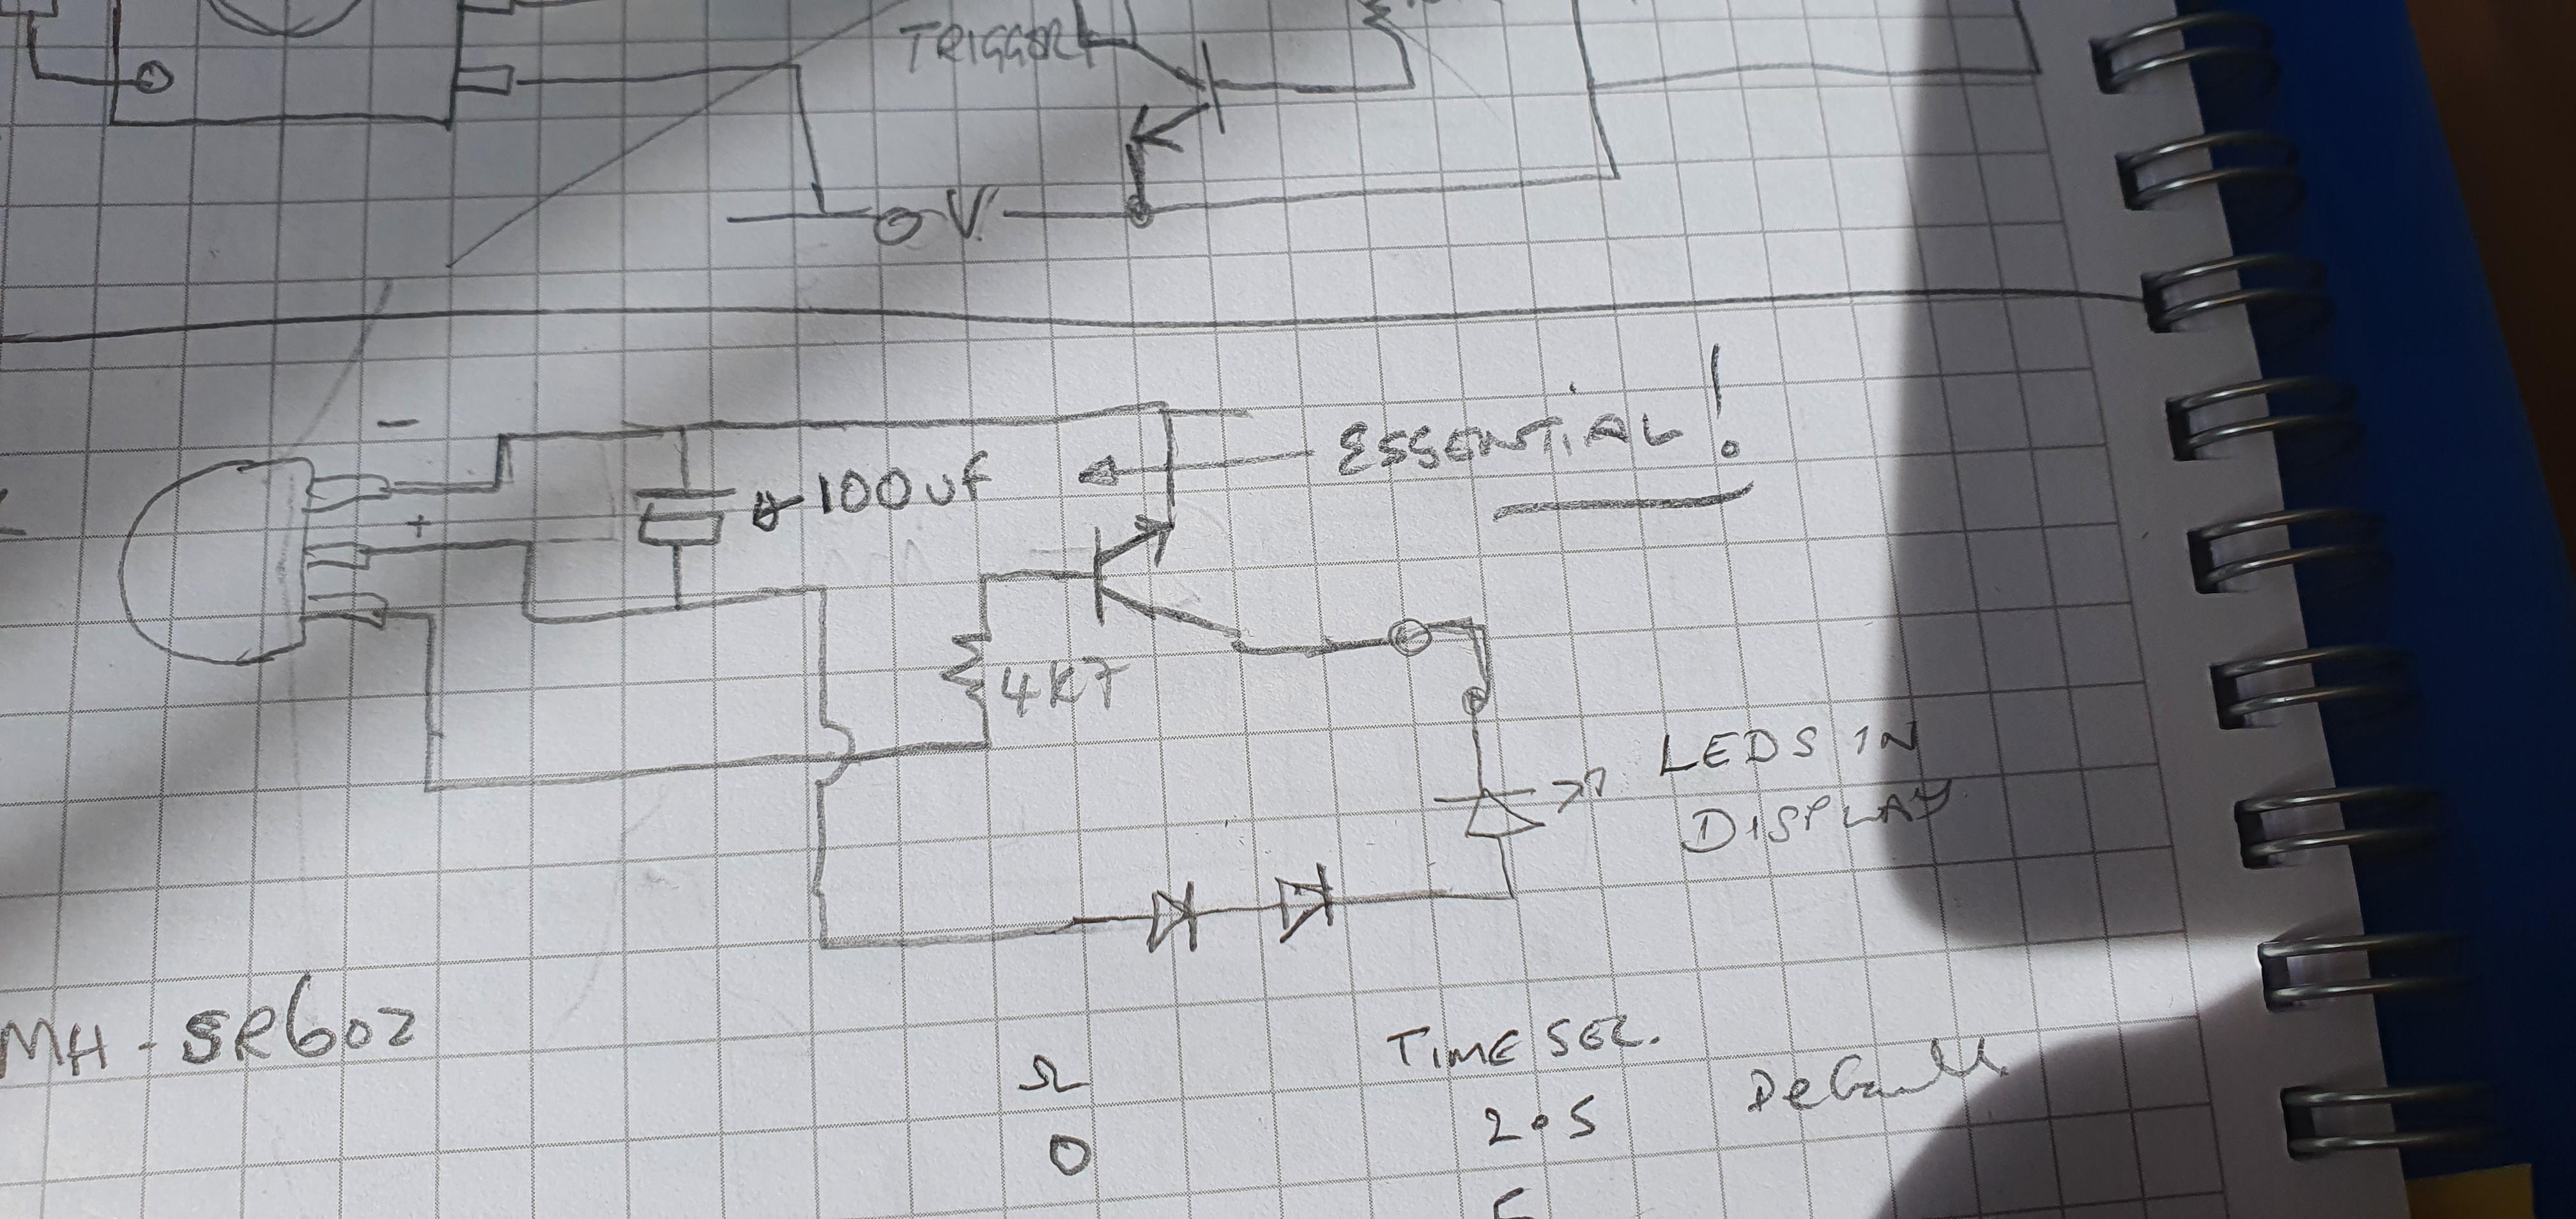 TRIGGER
0V.
-
ESSENTIAL!
100uf
+
4K7
LEDS IN
DISPLAY
MH-SR602
Ω TIME SEC.
0 2.5 Default